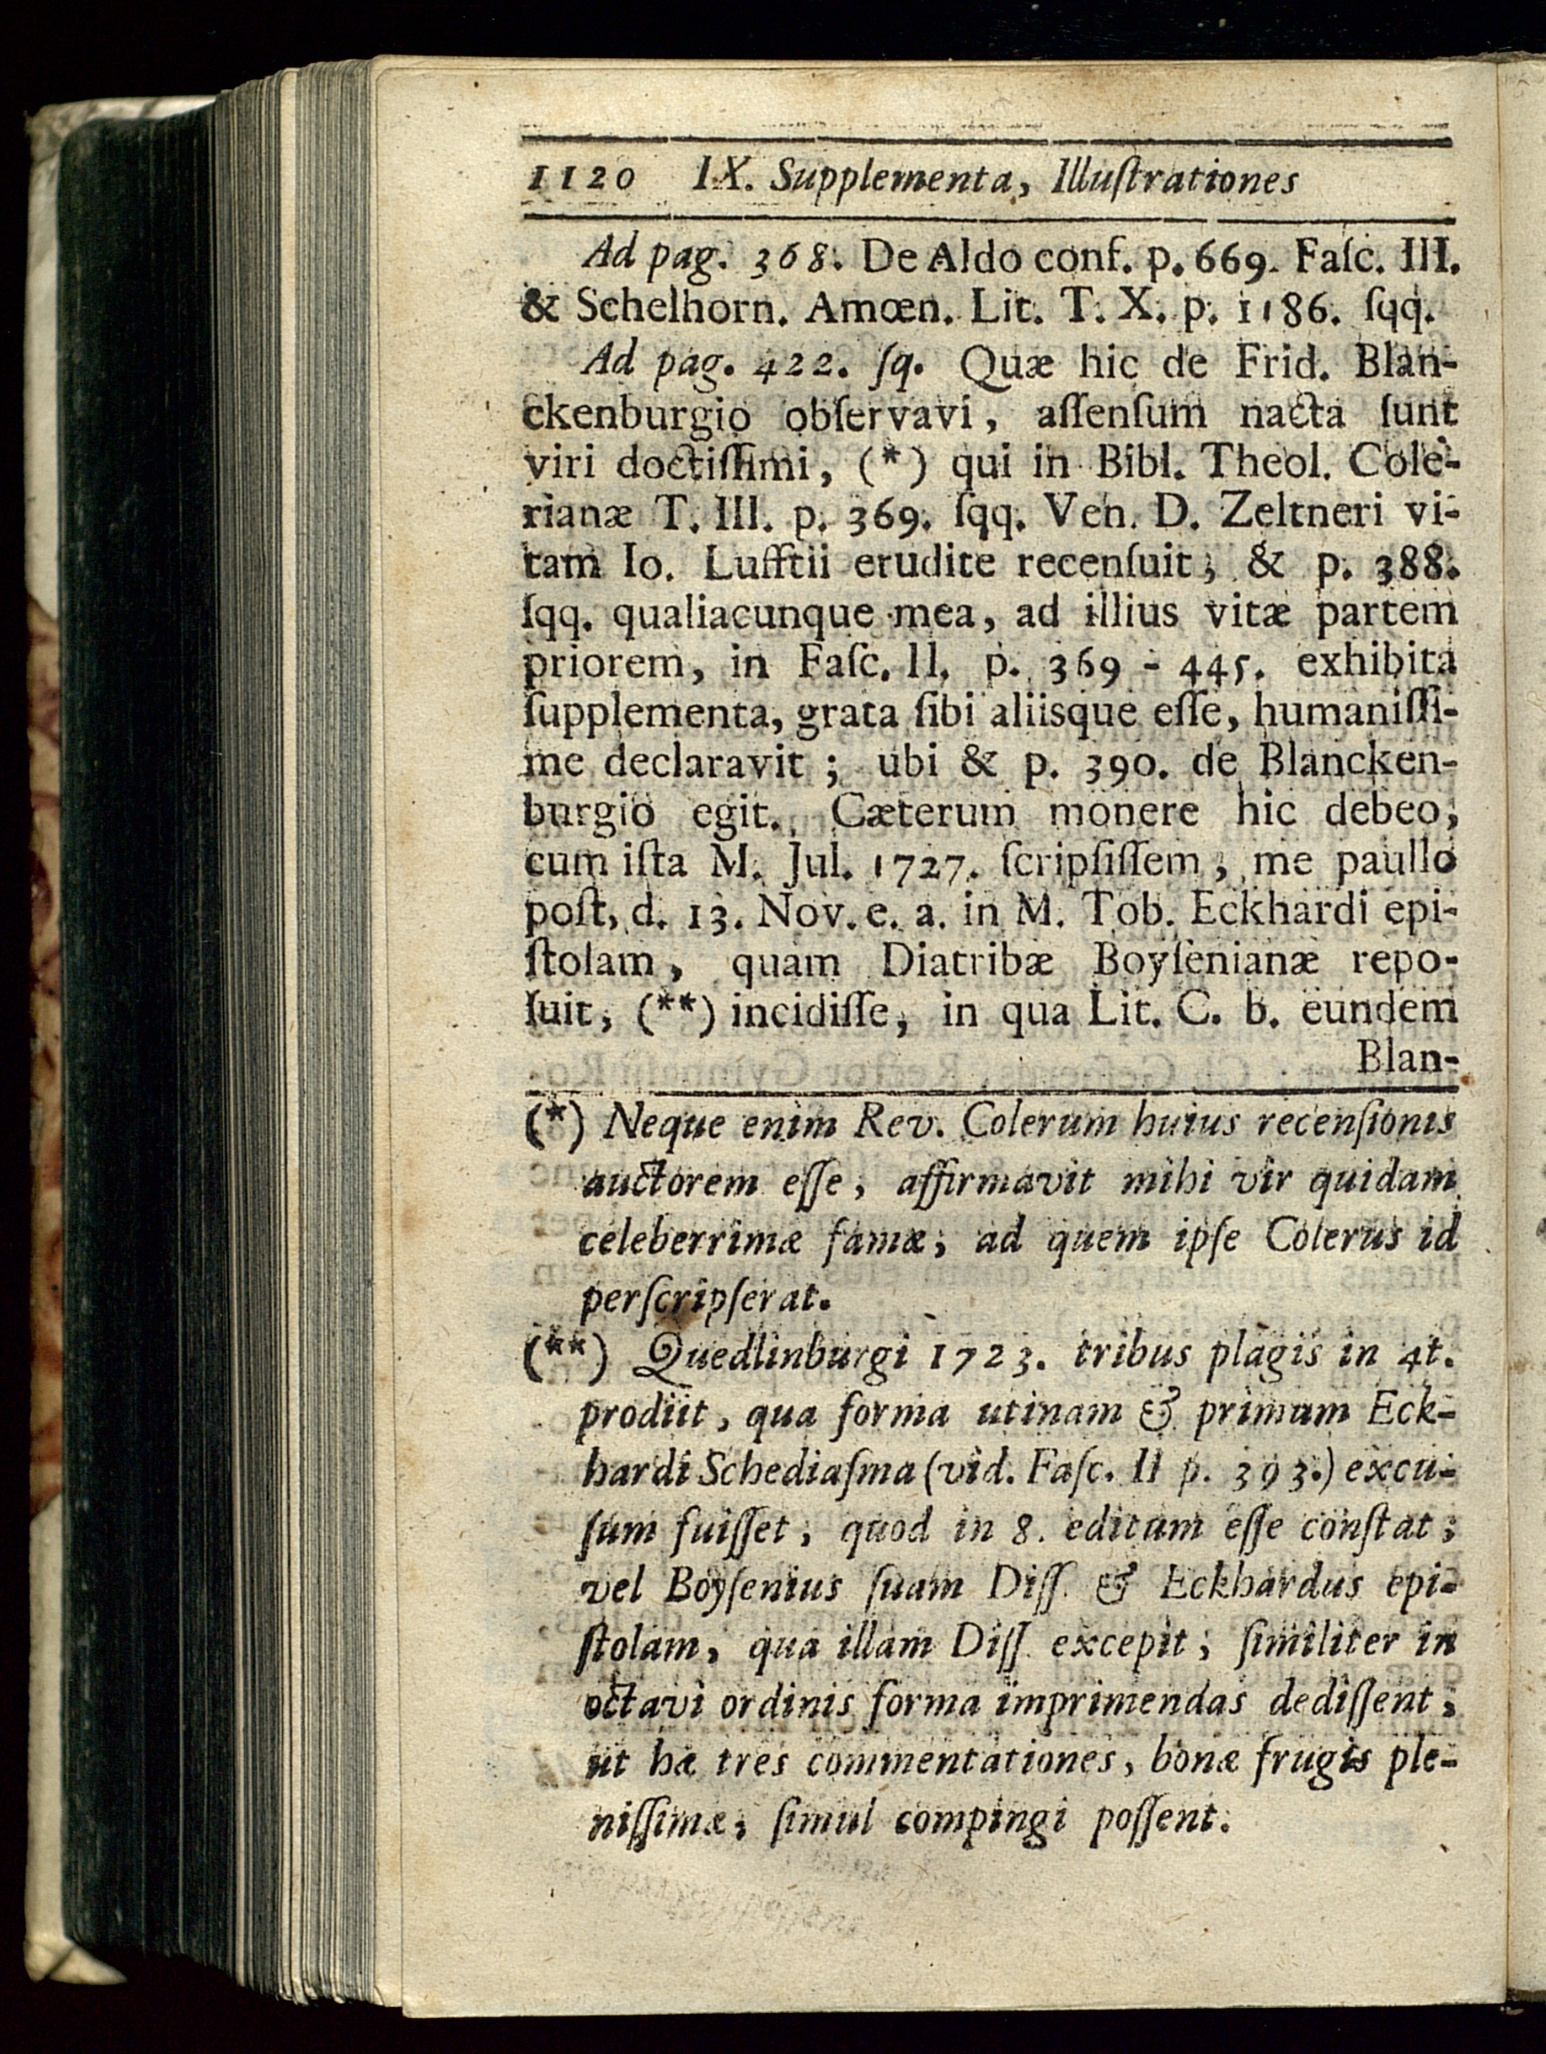 1120 IX. Supplementa, Illuſtrationes
Ad pag. 368. De Aldo conf. p. 669. Faſc. III.
& Schelhorn. Amœn. Lit. T. X. p. 1186. ſqq.
Ad pag. 422. ſq. Quæ hic de Frid. Blan-
ckenburgio obſervavi, aſſenſum nacta ſunt
viri doctiſſimi, (*) qui in Bibl. Theol. Cole-
rianæ T. III. p. 369. ſqq. Ven. D. Zeltneri vi-
tam Io. Lufftii erudite recenſuit; & p. 388.
ſqq. qualiacunque mea, ad illius vitæ partem
priorem, in Faſc. II. p. 369 - 445. exhibita
ſupplementa, grata ſibi aliisque eſſe, humaniſſi-
me declaravit; ubi & p. 390. de Blancken-
burgio egit. Cæterum monere hic debeo,
cum iſta M. Jul. 1727. ſcripſiſſem, me paullo
poſt, d. 13. Nov. e. a. in M. Tob. Eckhardi epi-
ſtolam, quam Diatribæ Boyſenianæ repo-
ſuit, (**) incidiſſe, in qua Lit. C. b. eundem
Blan-
(*) Neque enim Rev. Colerum huius recenſionis
auctorem eſſe, affirmavit mihi vir quidam
celeberrimæ famæ, ad quem ipſe Colerus id
perſcripſerat.
(**) Quedlinburgi 1723. tribus plagis in 4t.
prodiit, qua forma utinam & primum Eck-
hardi Schediaſma (vid. Faſc. II p. 393.) excu-
ſum fuiſſet, quod in 8. editum eſſe conſtat;
vel Boyſenius ſuam Diſſ. & Eckhardus epi-
ſtolam, qua illam Diſſ. excepit, ſimiliter in
octavi ordinis forma imprimendas dediſſent,
ut hæ tres commentationes, bonæ frugis ple-
niſſimæ, ſimul compingi poſſent.